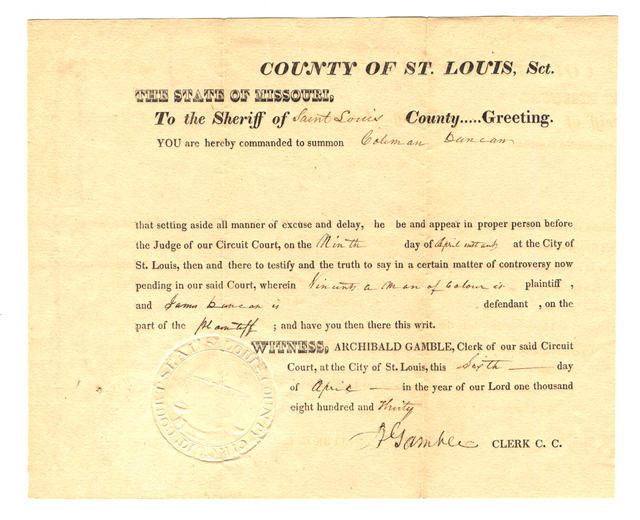 COUNTY OF ST. LOUIS, Sct.
THE STATE OF MISSOURI,
To the Sheriff of Saint Louis County.....Greeting.
YOU are hereby commanded to summon Coleman Duncan
that setting aside all manner of excuse and delay, he be and appear in proper person before
the Judge of our Circuit Court, on the Ninth day of April instant at the City of
St. Louis, then and there to testify and the truth to say in a certain matter of controversy now
pending in our said Court, wherein Vincent a Man of Colour is plaintiff ,
and James Duncan is defendant , on the
part of the plaintiff ; and have you then there this writ.
WITNESS, ARCHIBALD GAMBLE, Clerk of our said Circuit
Court, at the City of St. Louis, this Sixth day
of April in the year of our Lord one thousand
eight hundred and thirty
A Gamble CLERK C. C.